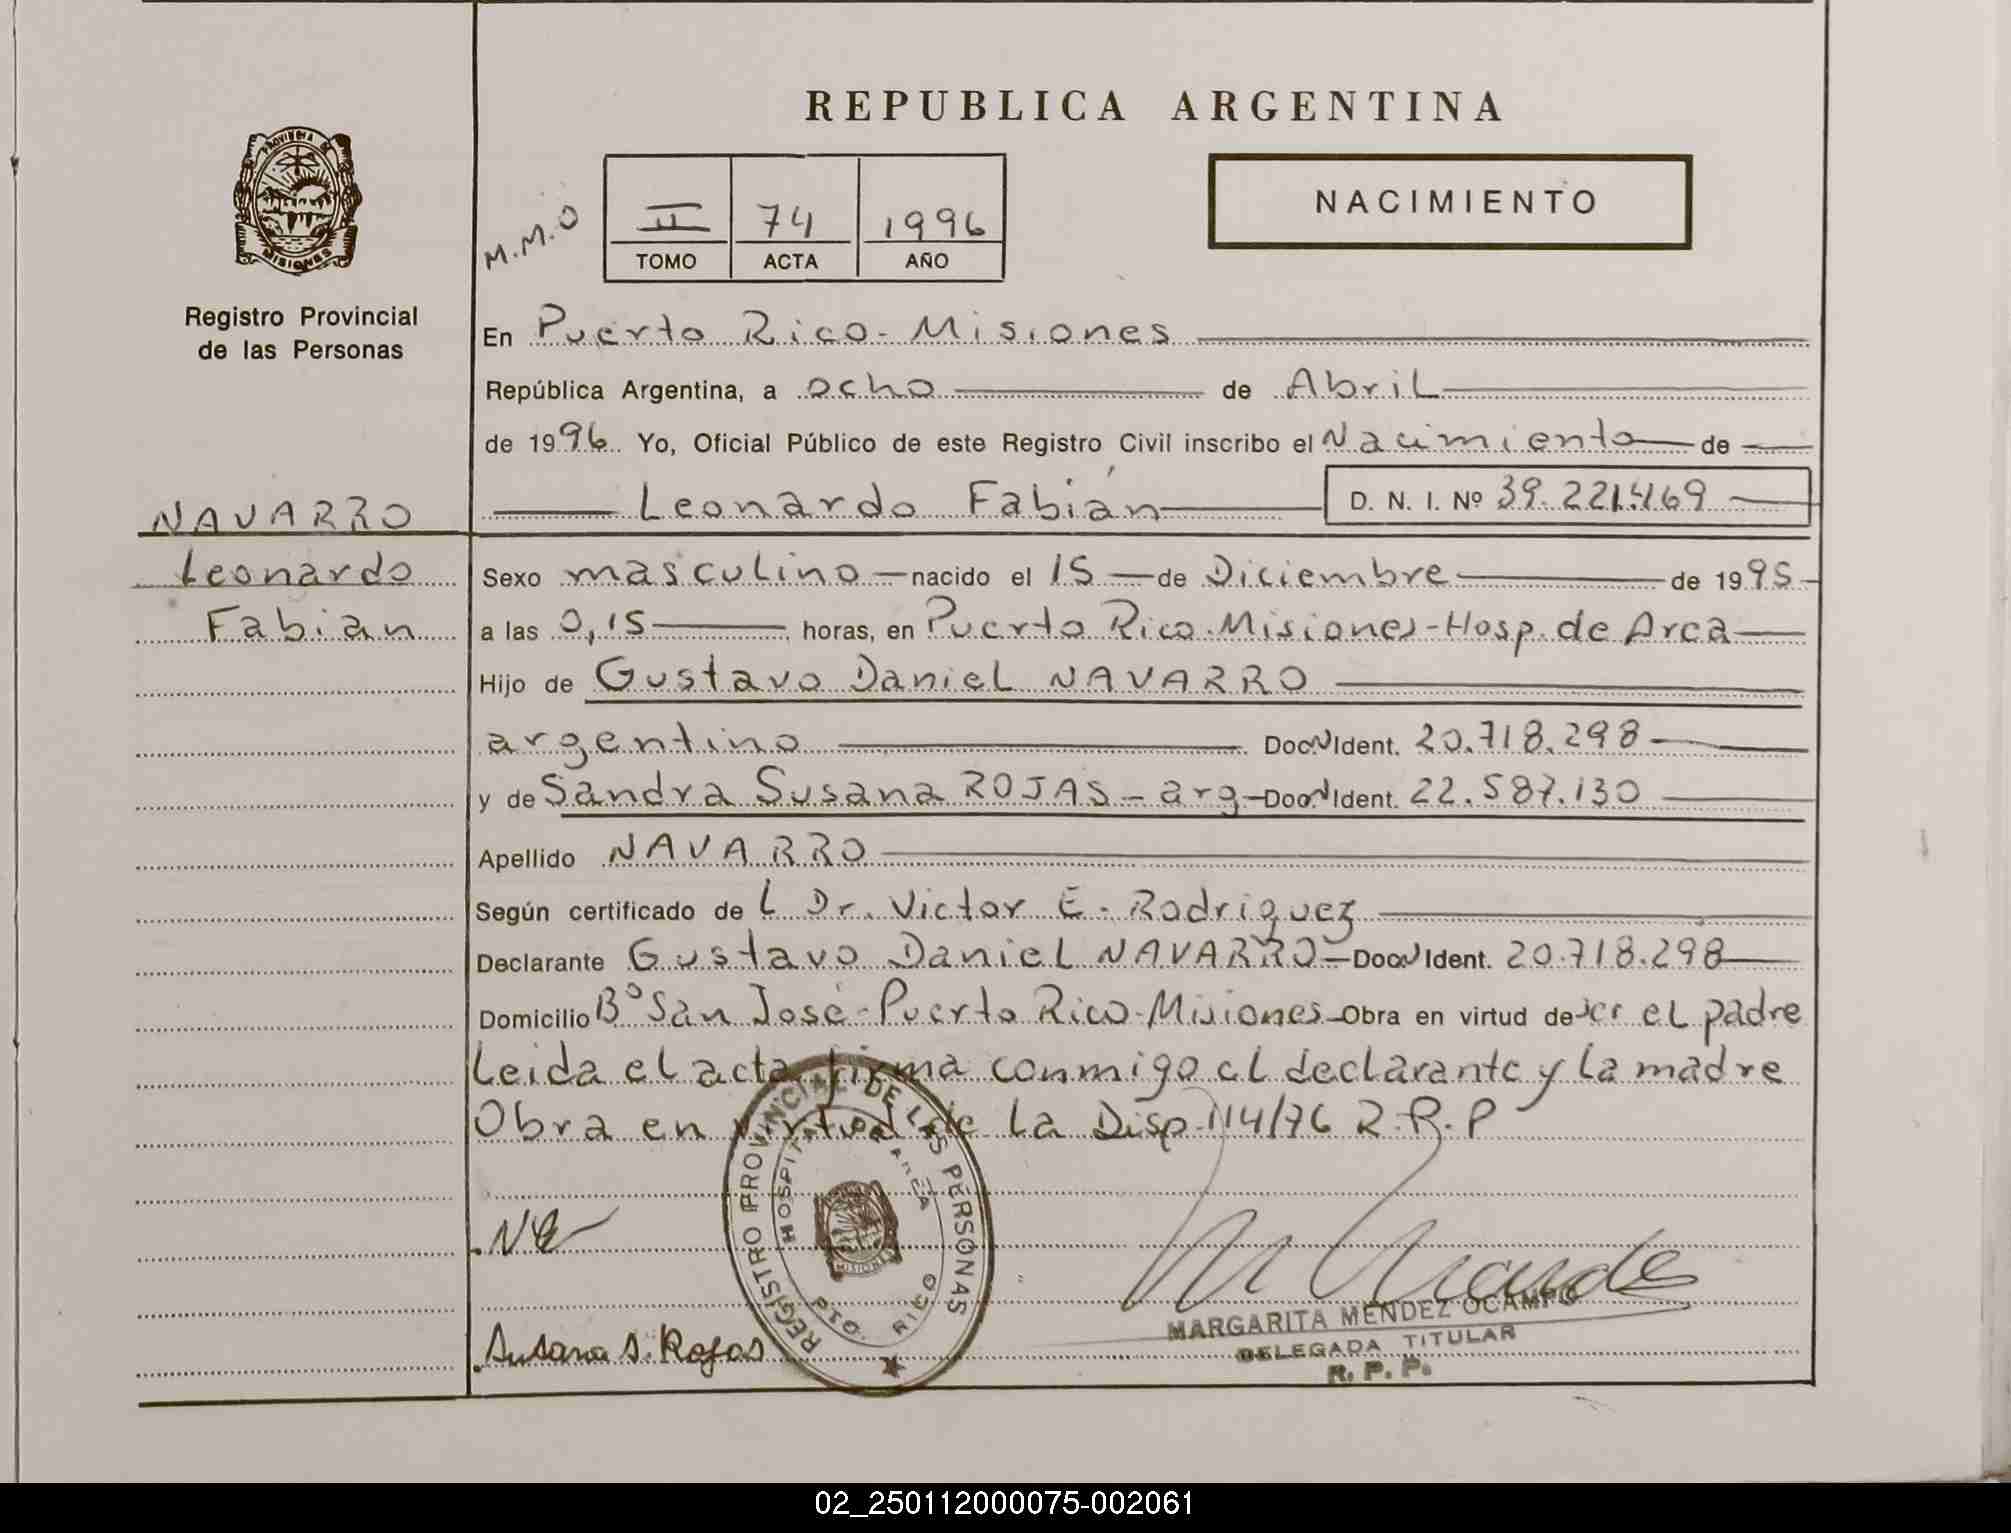 REPUBLICA ARGENTINA
PROVINCIA DE MISIONES
Registro Provincial
de las Personas
M.M.O
II 74 1996
TOMO ACTA AÑO
NACIMIENTO
En Puerto Rico - Misiones
República Argentina, a ocho de Abril
de 1996. Yo, Oficial Público de este Registro Civil inscribo el Nacimiento de
Leonardo Fabián D. N. I. Nº 39.221.469
NAVARRO
Leonardo
Fabian
Sexo masculino nacido el 15 de Diciembre de 1995
a las 0,15 horas, en Puerto Rico. Misiones - Hosp. de Area
Hijo de Gustavo Daniel NAVARRO
argentino Doc. N Ident. 20.718.298
y de Sandra Susana ROJAS - arg - Doc. N Ident. 22.587.130
Apellido NAVARRO
Según certificado de L Dr. Victor E. Rodriguez
Declarante Gustavo Daniel NAVARRO - Doc. N Ident. 20.718.298
Domicilio Bº San José - Puerto Rico - Misiones - Obra en virtud de ser el padre
Leida el acta firma conmigo el declarante y la madre
Obra en virtud de la Disp. 114/76 R.P.P
REGISTRO PROVINCIAL DE LAS PERSONAS
HOSPITAL DE AREA
PTO. RICO
MISIONES
Susana S. Rojas
MARGARITA MENDEZ OCAMPO
DELEGADA TITULAR
R. P. P.
02_250112000075-002061